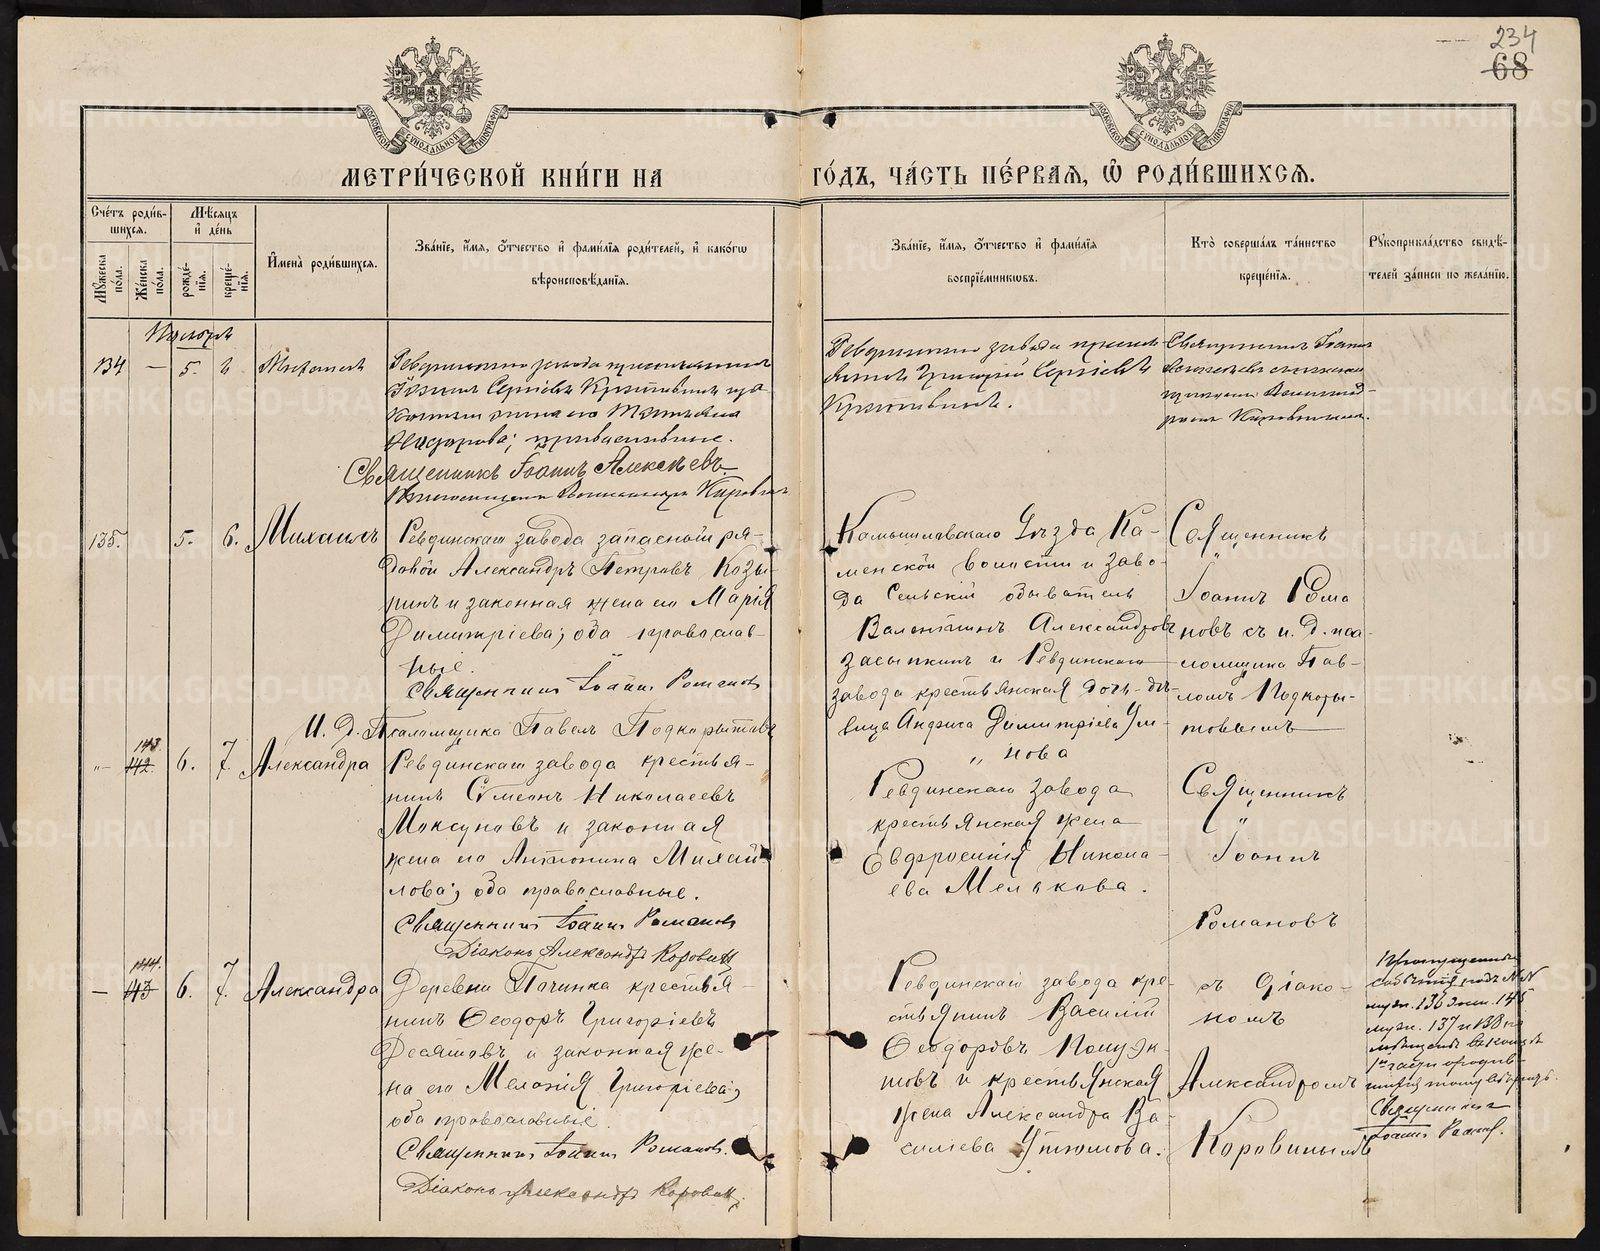 234
68
МОСКОВСКОЙ СѴНОДАЛЬНОЙ ТИПОГРАФІИ
МОСКОВСКОЙ СѴНОДАЛЬНОЙ ТИПОГРАФІИ
МЕТРИ́ЧЕСКОЙ КНИ́ГИ НА
ГО́ДЪ, ЧА́СТЬ ПЕ́РВАѦ, Ѡ҆ РОДИ́ВШИХСѦ.
Сче́тъ роди́в-
шихся.
Мꙋ́жеска по́ла.
Же́нска по́ла.
Мѣ́сяцъ
и҆ де́нь
рожде́-
нїя.
креще́-
нїя.
И҆мена̀ роди́вшихся.
Зва́нїе, и҆́мя, ѻ҆́тчество и҆ фами́лїя роди́телей, и҆ како́гѡ
вѣроисповѣ́данїя.
Зва́нїе, и҆́мя, ѻ҆́тчество и҆ фами́лїя
воспрїе́мникѡвъ.
Кто̀ соверша́лъ та́инство
креще́нїя.
Рꙋкоприкла́дство свидѣ́-
телей за́писи по жела́нїю.
134
—
5.
6
Ревдинскаго завода
Іоаннъ Сергіевъ
законная жена его Татьяна
православные.
Священникъ Іоаннъ Алексѣевъ
Ревдинскаго завода
Григорій Сергіевъ
Священникъ Іоаннъ
135.
5.
6.
Михаилъ
Ревдинскаго завода запасный ря-
довой Александръ Петровъ Козы-
ринъ и законная жена его Марія
Димитріева; оба православ-
ные.
Священникъ Іоаннъ Романовъ
И. д. Псаломщика Павелъ Подкорытовъ
Камышловскаго Уѣзда Ка-
менской волости и заво-
да Сельскій обыватель
Валентинъ Александровъ
Засыпкинъ и Ревдинскаго
завода крестьянская дочь-дѣ-
вица Анфиса Димитріева Ум-
нова
Священникъ
Іоаннъ Рома
новъ съ и. д. пса-
ломщика Пав-
ломъ Подкоры-
товымъ
143
142.
6.
7.
Александра
Ревдинскаго завода крестья-
нинъ Сѵмеонъ Николаевъ
Моксуновъ и законная
жена его Антонина Михай
лова; оба православные.
Священникъ Іоаннъ Романовъ
Діаконъ Александръ Коровинъ
Ревдинскаго завода
крестьянская жена
Евфросинія Никола-
ева Мелякова.
Священникъ
Іоаннъ
Романовъ
144.
143
—
6.
7.
Александра
Деревни Починка крестья-
нинъ Ѳеодоръ Григоріевъ
Десятовъ и законная же-
на его Меланія Григоріева;
оба православные.
Священникъ Іоаннъ Романовъ.
Діаконъ Александръ Коровинъ.
Ревдинскаго завода кре-
стьянинъ Василій
Ѳеодоровъ Полуэк-
товъ и крестьянская
жена Александра Ва-
силіева Утюмова.
съ діако-
номъ
Александромъ
Коровинымъ
Пропущенныя
событія подъ №№
муж. 136 жен. 145
муж. 137 и 138
Священникъ
Іоаннъ Роман.